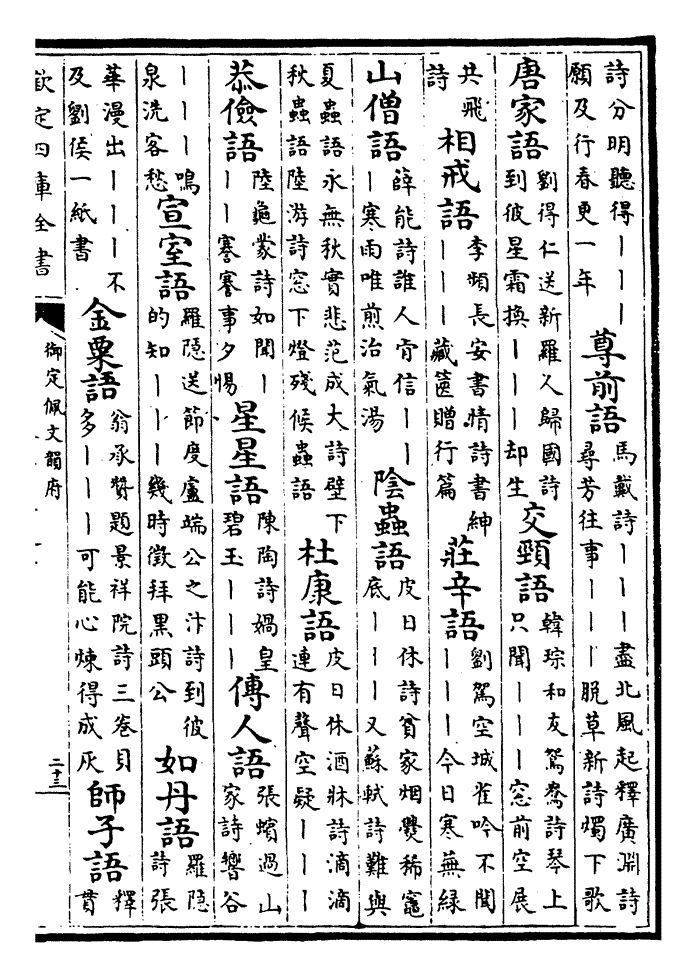 詩分明聽得丨丨丨願及行春更一年 尊前語 馬戴詩丨丨丨盡北風起釋廣淵詩尋芳往事丨丨丨脫草新詩燭下歌
唐家語 劉得仁送新羅人歸國詩到彼星霜換丨丨丨却生 交頸語 韓琮和友鴛鴦詩琴上只聞丨丨丨窓前空展
共飛詩 相戒語 李頻長安書情詩書紳丨丨丨藏篋贈行篇 莊辛語 劉駕空城雀吟不聞丨丨丨今日寒蕪綠
山僧語 薛能詩誰人肯信丨丨丨寒雨唯煎治氣湯 陰蟲語 皮日休詩貧家烟爨稀竈底丨丨丨又蘇軾詩難與
夏蟲語永無秋實悲范成大詩壁下秋蟲語陸游詩窓下燈殘候蟲語 杜康語 皮日休酒牀詩滴滴連有聲空疑丨丨丨
恭儉語 陸龜蒙詩如聞丨丨丨謇謇事夕惕 星星語 陳陶詩媧皇碧玉丨丨丨 傳人語 張蠙過山家詩響谷
丨丨丨鳴泉洗客愁 宣室語 羅隱送節度盧端公之汴詩到彼的知丨丨丨幾時徵拜黑頭公 如丹語 羅隱詩張
華漫出丨丨丨不及劉侯一紙書 金粟語 翁承贊題景祥院詩三卷貝多丨丨丨可能心煉得成灰 師子語 釋貫
欽定四庫全書
御定佩文韻府
二十三